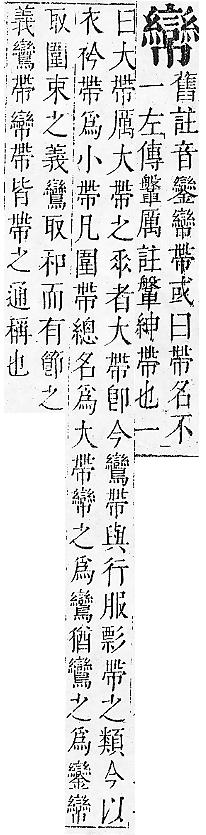 㡩
舊註音鑾㡩帶或曰帶名不
一左傳鞶厲註鞶紳帶也一
曰大帶厲大帶之垂者大帶卽今鸞帶與行服影帶之類今以
衣衿帶爲小帶凡圍帶總名爲大帶㡩之爲鸞猶鸞之爲鑾㡩
取圍束之義鸞取和而有節之
義鸞帶㡩帶皆帶之通稱也